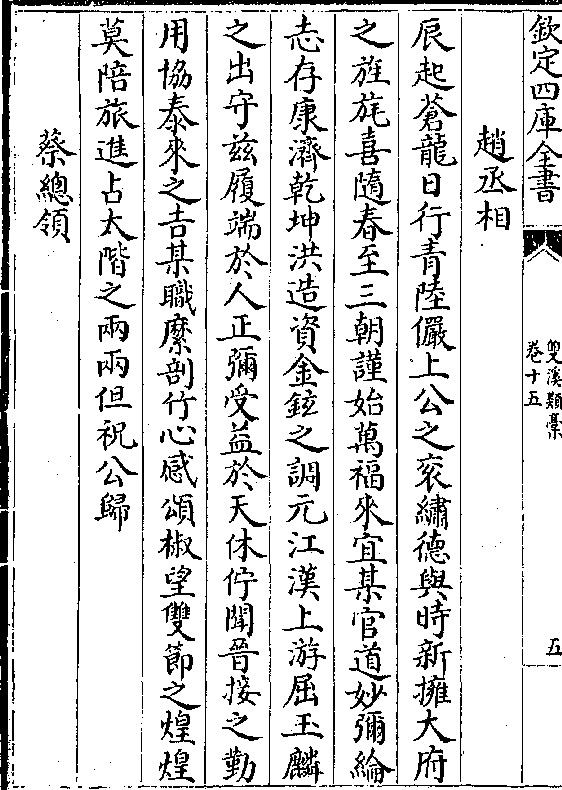 欽定四庫全書
雙溪類稾
卷十五
五
趙丞相
辰起蒼龍日行青陸儼上公之衮繡德與時新擁大府
之旌旄喜隨春至三朝謹始萬福來宜某官道妙彌綸
志存康濟乾坤洪造資金鉉之調元江漢上游屈玉麟
之出守兹履端於人正彌受益於天休佇聞晉接之勤
用協泰來之吉某職縻剖竹心感頌椒望雙節之煌煌
莫陪旅進占太階之兩兩但祝公歸
蔡總領